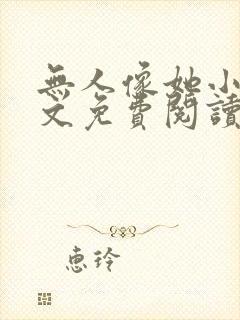 無人像她小
文免費閱讀
惠玲